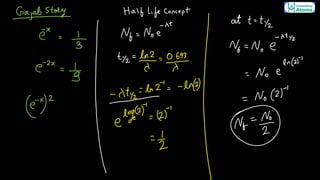 Gazab Story
e^-x = 1/3
e^-2x = 1/9
(e^-x)^2
Half Life Concept
N_f = N_0 e^-λt
t_1/2 = ln2/λ = 0.693/λ
-λt_1/2 = ln2^-1 = -ln(2)
e^log_e(2)^-1 = (2)^-1
= 1/2
at t = t_1/2
N_f = N_0 e^-λt_1/2
= N_0 e^ln(2)^-1
= N_0 (2)^-1
N_f = N_0/2